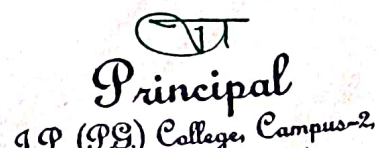 Principal
J.P. (PG.) College, Campus-2,